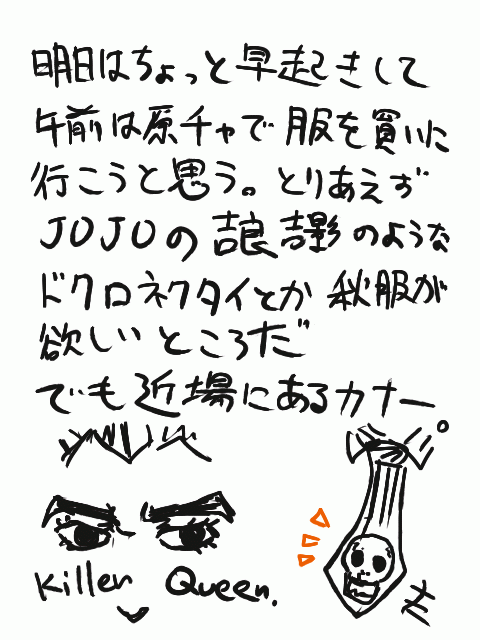 明日はちょっと早起きして
午前は原チャで服を買いに
行こうと思う。とりあえず
JOJOの吉良吉影のような
ドクロネクタイとか秋服が
欲しいところだ
でも近場にあるカナー。
Killer Queen.